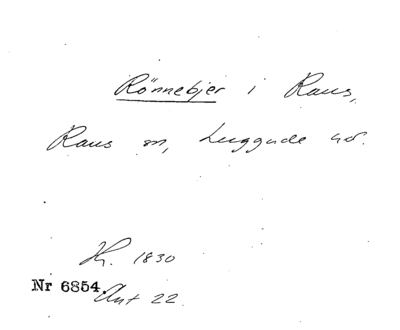 Rönnebjer i Raus,
Raus sn, Luggude hd.
Hr. 1830
Nr 6854. Ant 22